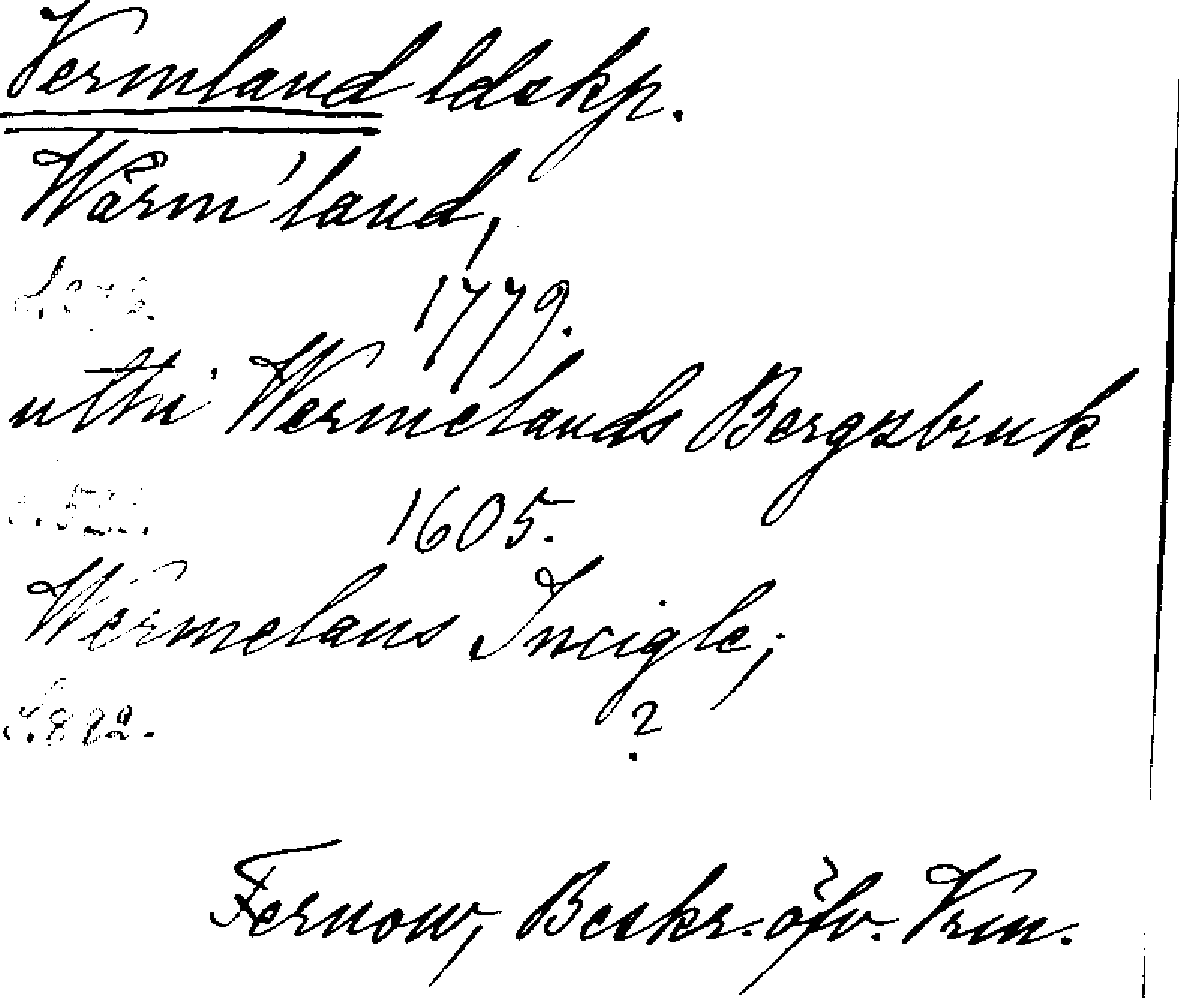 Vermland ldskp.
Wärm'land,
1779.
uthi Wermelands Bergzbruk
1605.
Wermelans Incigle;
S. 882. ?
Fernow, Beskr. öfv. Vrm.